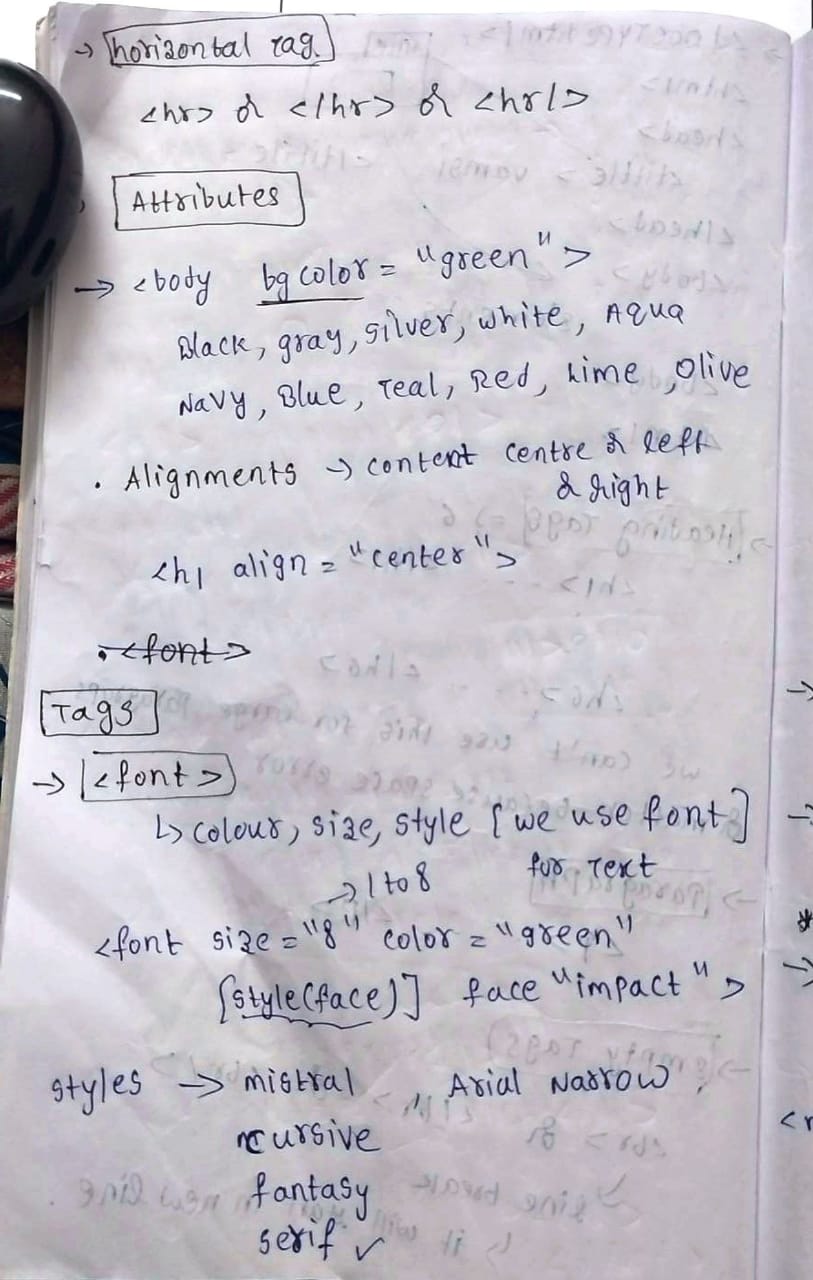 → horizontal Tag.
<hr> or </hr> or <hr/>
Attributes
→ <body bgcolor = "green">
Black, gray, silver, white, Aqua
Navy, Blue, Teal, Red, Lime, Olive
. Alignments → content centre or left
& right
<h1 align = "center">
.<font>
Tags
→ <font>
↳ colour, size, style [we use font]
for Text
→ 1 to 8
<font size = "8" color = "green"
[style(face)] face "impact">
styles → mistral Arial Narrow,
cursive
fantasy
serif ✓